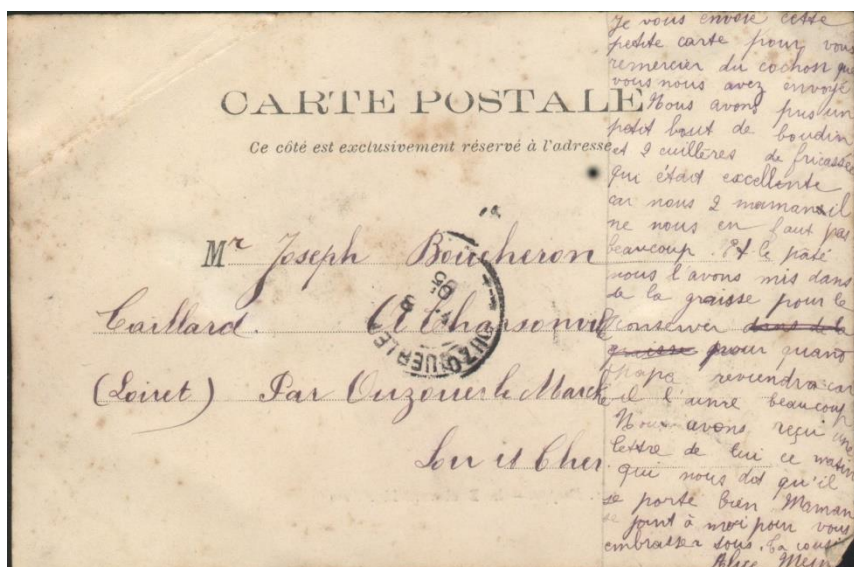 CARTE POSTALE
Ce côté est exclusivement réservé à l'adresse
Mr Joseph Boucheron
Caillard. à Charsonville
(Loiret) Par Ouzouer le Marché
Loir et Cher
Je vous envoie cette
petite carte pour vous
remercier du cochon que
vous nous avez envoyé
Nous avons pris un
petit bout de boudin
et 2 cuillères de fricassée
qui était excellente
car nous 2 maman il
ne nous en faut pas
beaucoup. Et le pâté
nous l'avons mis dans
de la graisse pour le
conserver dans de la
graisse pour quand
papa reviendra car
il l'aime beaucoup
Nous avons reçu une
lettre de lui ce matin
qui nous dit qu'il
se porte bien Maman
se joint à moi pour vous
embrasser tous. Ta
Alice